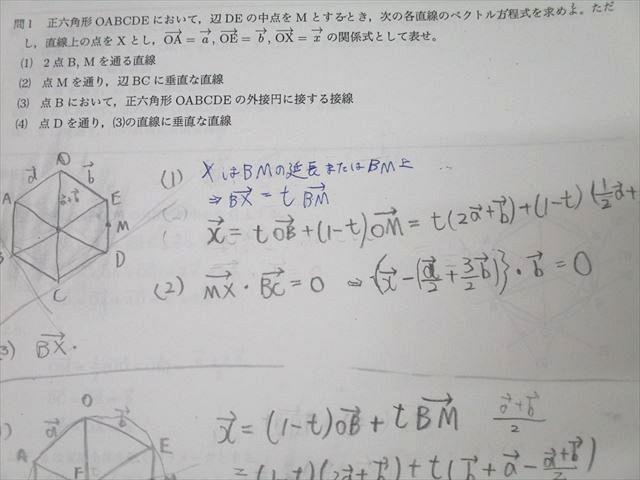 問1 正六角形OABCDEにおいて，辺DEの中点をMとするとき，次の各直線のベクトル方程式を求めよ。ただ
し，直線上の点をXとし，OA = a , OE = b , OX = x の関係式として表せ。
(1) 2点B, Mを通る直線
(2) 点Mを通り，辺BCに垂直な直線
(3) 点Bにおいて，正六角形OABCDEの外接円に接する接線
(4) 点Dを通り，(3)の直線に垂直な直線
a b
A a+b E
M
D
C
(1) XはBMの延長またはBM上
⇒ BX = t BM
x = t OB + (1-t) OM = t(2a+b) + (1-t)(1/2 a+
(2) MX・BC = 0 ⇒ {x - (a/2 + 3/2 b)}・b = 0
3) BX・
a O b
A E
F
x = (1-t) OB + t BM
a+b/2
= (1-t)(2a+b) + t(b + a - a+b/2)